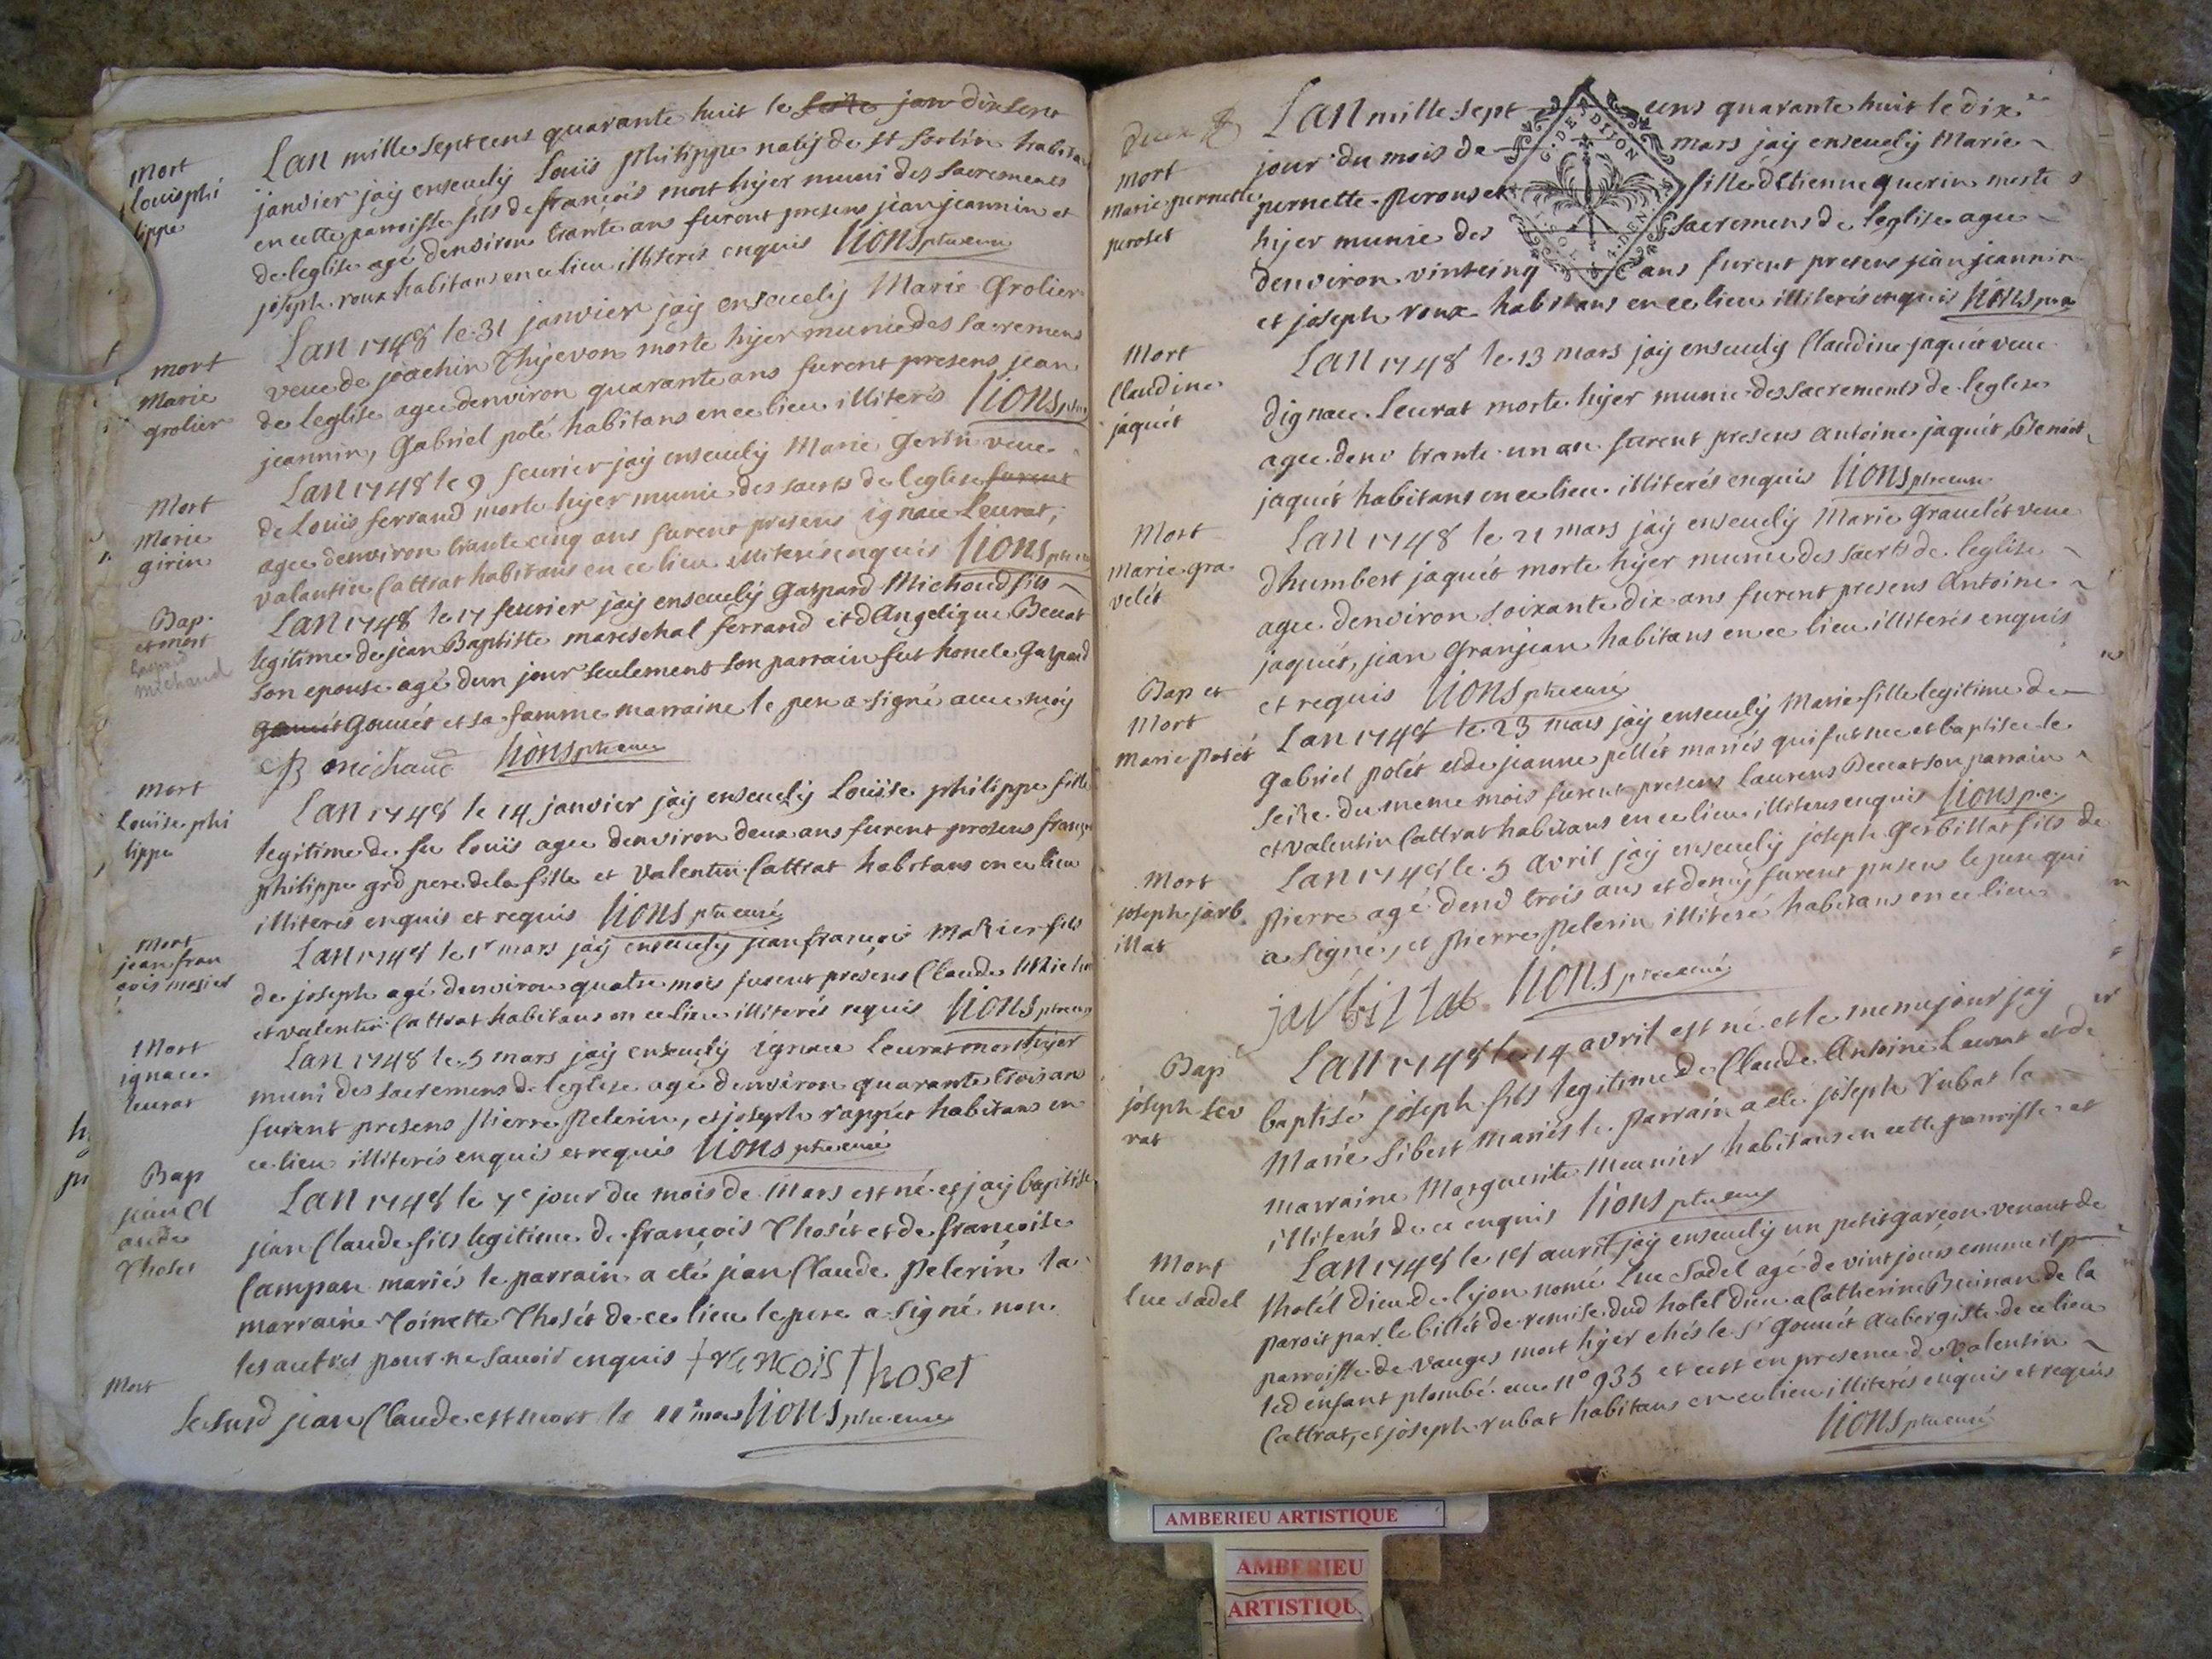 Mort
Louis phi
lippe
Lan mille sept cens quarante huit le seize jan dix sept
janvier jaÿ enseuely Louïs philippe natif de st sorlin habitan
en cette parroisse fils de francois mort hÿer muni des sacrements
de leglise agé denviron trante ans furent presens jean jeannin et
joseph roux habitans en ce lieu illiterés enquis Lions ptre curé
mort
Marie
grolier
Lan 1748 le 31 janvier jaÿ enseuely Marie Grolier
veue de joachin Thÿevon morte hÿer munie des sacremens
de leglise agee denviron quarante ans furent presens jean
jeannin, Gabriel poté habitans en ce lieu illiterés Lions ptre
Mort
Marie
girin
Lan 1748 le 9 feurier jaÿ enseuely Marie Gerin veue
de Louïs ferrand morte hÿer munie des sacrts de leglise furent
agee denviron trante cinq ans furent presens ignace Leurat,
valantin Cattrat habitans en ce lieu illiterés enquis Lions ptre
Bap.
et mort
Gaspard
michaud
Lan 1748 le 17 feurier jaÿ enseuely Gaspard Michoud fils
legitime de jean Baptiste mareschal ferrand et dAngelique Beuat
son epouse agé dun jour seulement son parrain fut honele Gaspard
Gouuét et sa famme marraine le pere a signé auec moÿ
michaud Lions ptre curé
Mort
Louise phi
lippe
Lan 1748 le 14 janvier jaÿ enseuely Louïse philippe fille
legitime de fu Louïs agee denviron deux ans furent presens françois
philippe grd pere de la fille et Valentin Cattrat habitans en ce lieu
illiteris enquis et requis Lions ptre curé
Mort
jean fran
cois masier
Lan 1748 le 1r mars jaÿ enseuely jean françois Mazier fils
de joseph agé denviron quatre mois furent presens Claude
et valentin Cattrat habitans en ce lieu illiterés requis Lions ptre curé
Mort
ignace
leurat
Lan 1748 le 5 mars jaÿ enseuely ignace Leurat mort hÿer
muni des sacremens de leglise agé denviron quarante trois ans
furent presens pierre pelerin, et joseph rappét habitans en
ce lieu illiterés enquis et requis Lions ptre curé
Bap
jean Cl
aude
Thoset
Lan 1748 le 7e jour du mois de Mars est né et jaÿ baptisé
jean Claude fils legitime de françois Thosét et de francoise
Campan mariés le parrain a eté jean Claude pelerin la
marraine Toinette Thosét de ce lieu le pere a signé non
les autres pour ne sauoir enquis francois Thoset
Mort
Le susd jean Claude est mort le 11e mars Lions ptre curé
deux
mort
Marie pernette
peroset
Lan mille sept cens quarante huit le dixe
jour du mois de mars jaÿ enseuely Marie
pernette Perouset fille dEtienne guerin morte
hÿer munie des sacremens de leglise agee
denviron vintcinq ans furent presens jean jeannin
et joseph roux habitans en ce lieu illiterés enquis Lions ptre
G. DE DIJON
Mort
Claudine
jaquét
Lan 1748 le 13 mars jaÿ enseuely Claudine jaquét veue
dignace Leurat morte hÿer munie des sacrements de leglise
agee denv trante un an furent presens Antoine jaquét, Benoit
jaquét habitans en ce lieu illiterés enquis Lions ptre curé
Mort
Marie gra
velét
Lan 1748 le 21 mars jaÿ enseuely Marie Grauelét veue
dhumbert jaquét morte hÿer munie des sacrts de leglise
agee denviron soixante dix ans furent presens Antoine
jaquét, jean Granjean habitans en ce lieu illiterés enquis
et requis Lions ptre curé
Bap et
Mort
Marie Potét
Lan 1748 le 23 mars jaÿ enseuely Marie fille legitime de
Gabriel potét et de jeanne pellét mariés qui fut nee et baptisee le
seize du meme mois furent presens Laurens Beuat son parrain
et valentin Cattrat habitans en ce lieu illiteres enquis Lions p.c.
Mort
joseph jarb
illat
Lan 1748 le 5 Avril jaÿ enseuely joseph Gerbillat fils de
pierre agé denv trois ans et demÿ furent presens le pere qui
a signé, et pierre pelerin illiteré habitans en ce lieu
jarbillat Lions ptre curé
Bap
joseph Lev
rat
Lan 1748 le 14 avril est né et le meme jour jaÿ
baptisé joseph fils legitime de Claude Antoine Leurat et de
Marie Sibert mariés le parrain a eté joseph rubat la
marraine Marguerite Meunier habitans en cette parroisse et
illiterés de ce enquis Lions ptre curé
Mort
Luc sadel
Lan 1748 le 18 auril jaÿ enseuely un petit garçon venant de
lhotél Dieu de lÿon nomé Luc Sadel agé de vint jours comme il
paroit par le billét de remise dud hotel Dieu a Catherine de la
parroisse de vauges mort hÿer chés le sr Gouuét Aubergiste de ce lieu
led enfant plombé au no 935 et cest en presence de valentin
Cattrat, et joseph rubat habitans en ce lieu illiterés enquis et requis
Lions ptre curé
AMBERIEU ARTISTIQUE
AMBERIEU
ARTISTIQU